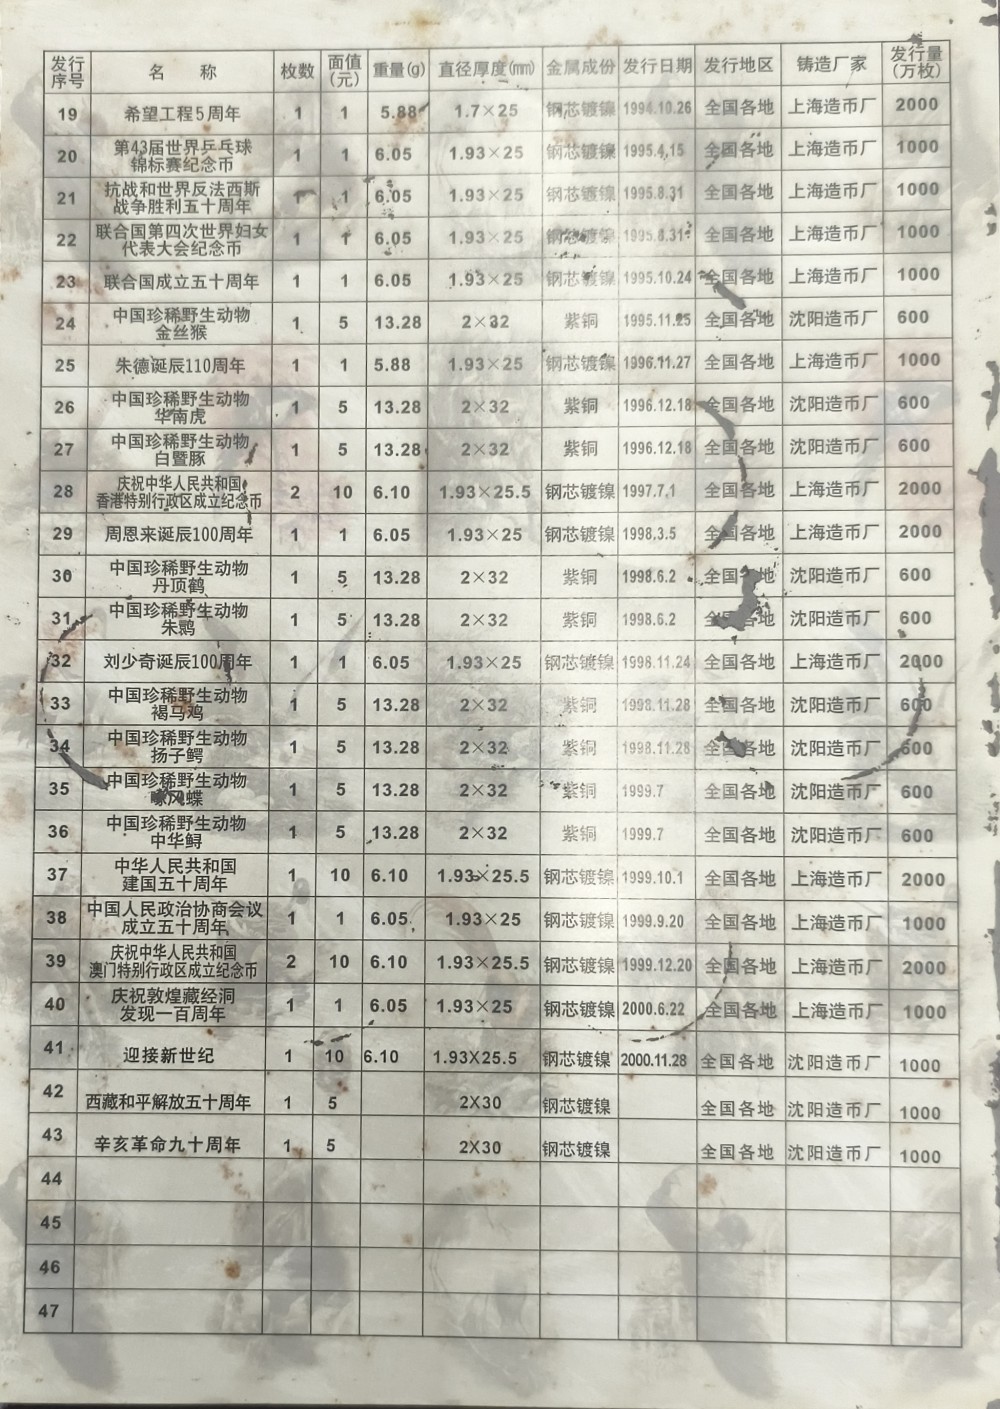 发行序号 名 称 枚数 面值(元) 重量(g) 直径厚度(mm) 金属成份 发行日期 发行地区 铸造厂家 发行量(万枚)
19 希望工程5周年 1 1 5.88 1.7×25 钢芯镀镍 1994.10.26 全国各地 上海造币厂 2000
20 第43届世界乒乓球锦标赛纪念币 1 1 6.05 1.93×25 钢芯镀镍 1995.4.15 全国各地 上海造币厂 1000
21 抗战和世界反法西斯战争胜利五十周年 1 1 6.05 1.93×25 钢芯镀镍 1995.8.31 全国各地 上海造币厂 1000
22 联合国第四次世界妇女代表大会纪念币 1 1 6.05 1.93×25 钢芯镀镍 1995.8.31 全国各地 上海造币厂 1000
23 联合国成立五十周年 1 1 6.05 1.93×25 钢芯镀镍 1995.10.24 全国各地 上海造币厂 1000
24 中国珍稀野生动物金丝猴 1 5 13.28 2×32 紫铜 1995.11.25 全国各地 沈阳造币厂 600
25 朱德诞辰110周年 1 1 5.88 1.93×25 钢芯镀镍 1996.11.27 全国各地 上海造币厂 1000
26 中国珍稀野生动物华南虎 1 5 13.28 2×32 紫铜 1996.12.18 全国各地 沈阳造币厂 600
27 中国珍稀野生动物白暨豚 1 5 13.28 2×32 紫铜 1996.12.18 全国各地 沈阳造币厂 600
28 庆祝中华人民共和国香港特别行政区成立纪念币 2 10 6.10 1.93×25.5 钢芯镀镍 1997.7.1 全国各地 上海造币厂 2000
29 周恩来诞辰100周年 1 1 6.05 1.93×25 钢芯镀镍 1998.3.5 全国各地 上海造币厂 2000
30 中国珍稀野生动物丹顶鹤 1 5 13.28 2×32 紫铜 1998.6.2 全国各地 沈阳造币厂 600
31 中国珍稀野生动物朱鹮 1 5 13.28 2×32 紫铜 1998.6.2 全国各地 沈阳造币厂 600
32 刘少奇诞辰100周年 1 1 6.05 1.93×25 钢芯镀镍 1998.11.24 全国各地 上海造币厂 2000
33 中国珍稀野生动物褐马鸡 1 5 13.28 2×32 紫铜 1998.11.28 全国各地 沈阳造币厂 600
34 中国珍稀野生动物扬子鳄 1 5 13.28 2×32 紫铜 1998.11.28 全国各地 沈阳造币厂 600
35 中国珍稀野生动物 1 5 13.28 2×32 紫铜 1999.7 全国各地 沈阳造币厂 600
36 中国珍稀野生动物中华鲟 1 5 13.28 2×32 紫铜 1999.7 全国各地 沈阳造币厂 600
37 中华人民共和国建国五十周年 1 10 6.10 1.93×25.5 钢芯镀镍 1999.10.1 全国各地 上海造币厂 2000
38 中国人民政治协商会议成立五十周年 1 1 6.05 1.93×25 钢芯镀镍 1999.9.20 全国各地 上海造币厂 1000
39 庆祝中华人民共和国澳门特别行政区成立纪念币 2 10 6.10 1.93×25.5 钢芯镀镍 1999.12.20 全国各地 上海造币厂 2000
40 庆祝敦煌藏经洞发现一百周年 1 1 6.05 1.93×25 钢芯镀镍 2000.6.22 全国各地 上海造币厂 1000
41 迎接新世纪 1 10 6.10 1.93X25.5 钢芯镀镍 2000.11.28 全国各地 沈阳造币厂 1000
42 西藏和平解放五十周年 1 5 2X30 钢芯镀镍 全国各地 沈阳造币厂 1000
43 辛亥革命九十周年 1 5 2X30 钢芯镀镍 全国各地 沈阳造币厂 1000
44
45
46
47